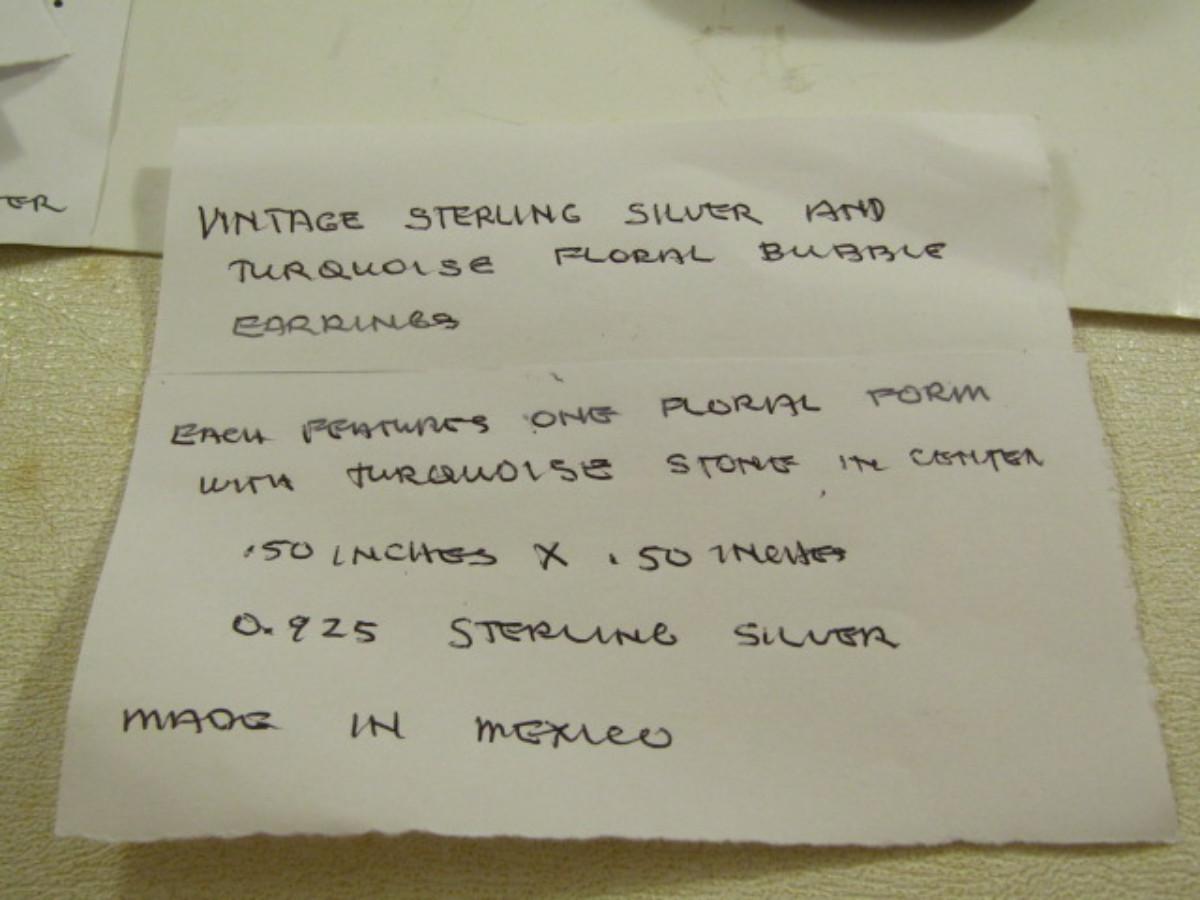 ER
VINTAGE STERLING SILVER AND
TURQUOISE FLORAL BUBBLE
EARRINGS
EACH FEATURES ONE FLORAL FORM
WITH TURQUOISE STONE IN CENTER
.50 INCHES X .50 INCHES
0.925 STERLING SILVER
MADE IN MEXICO